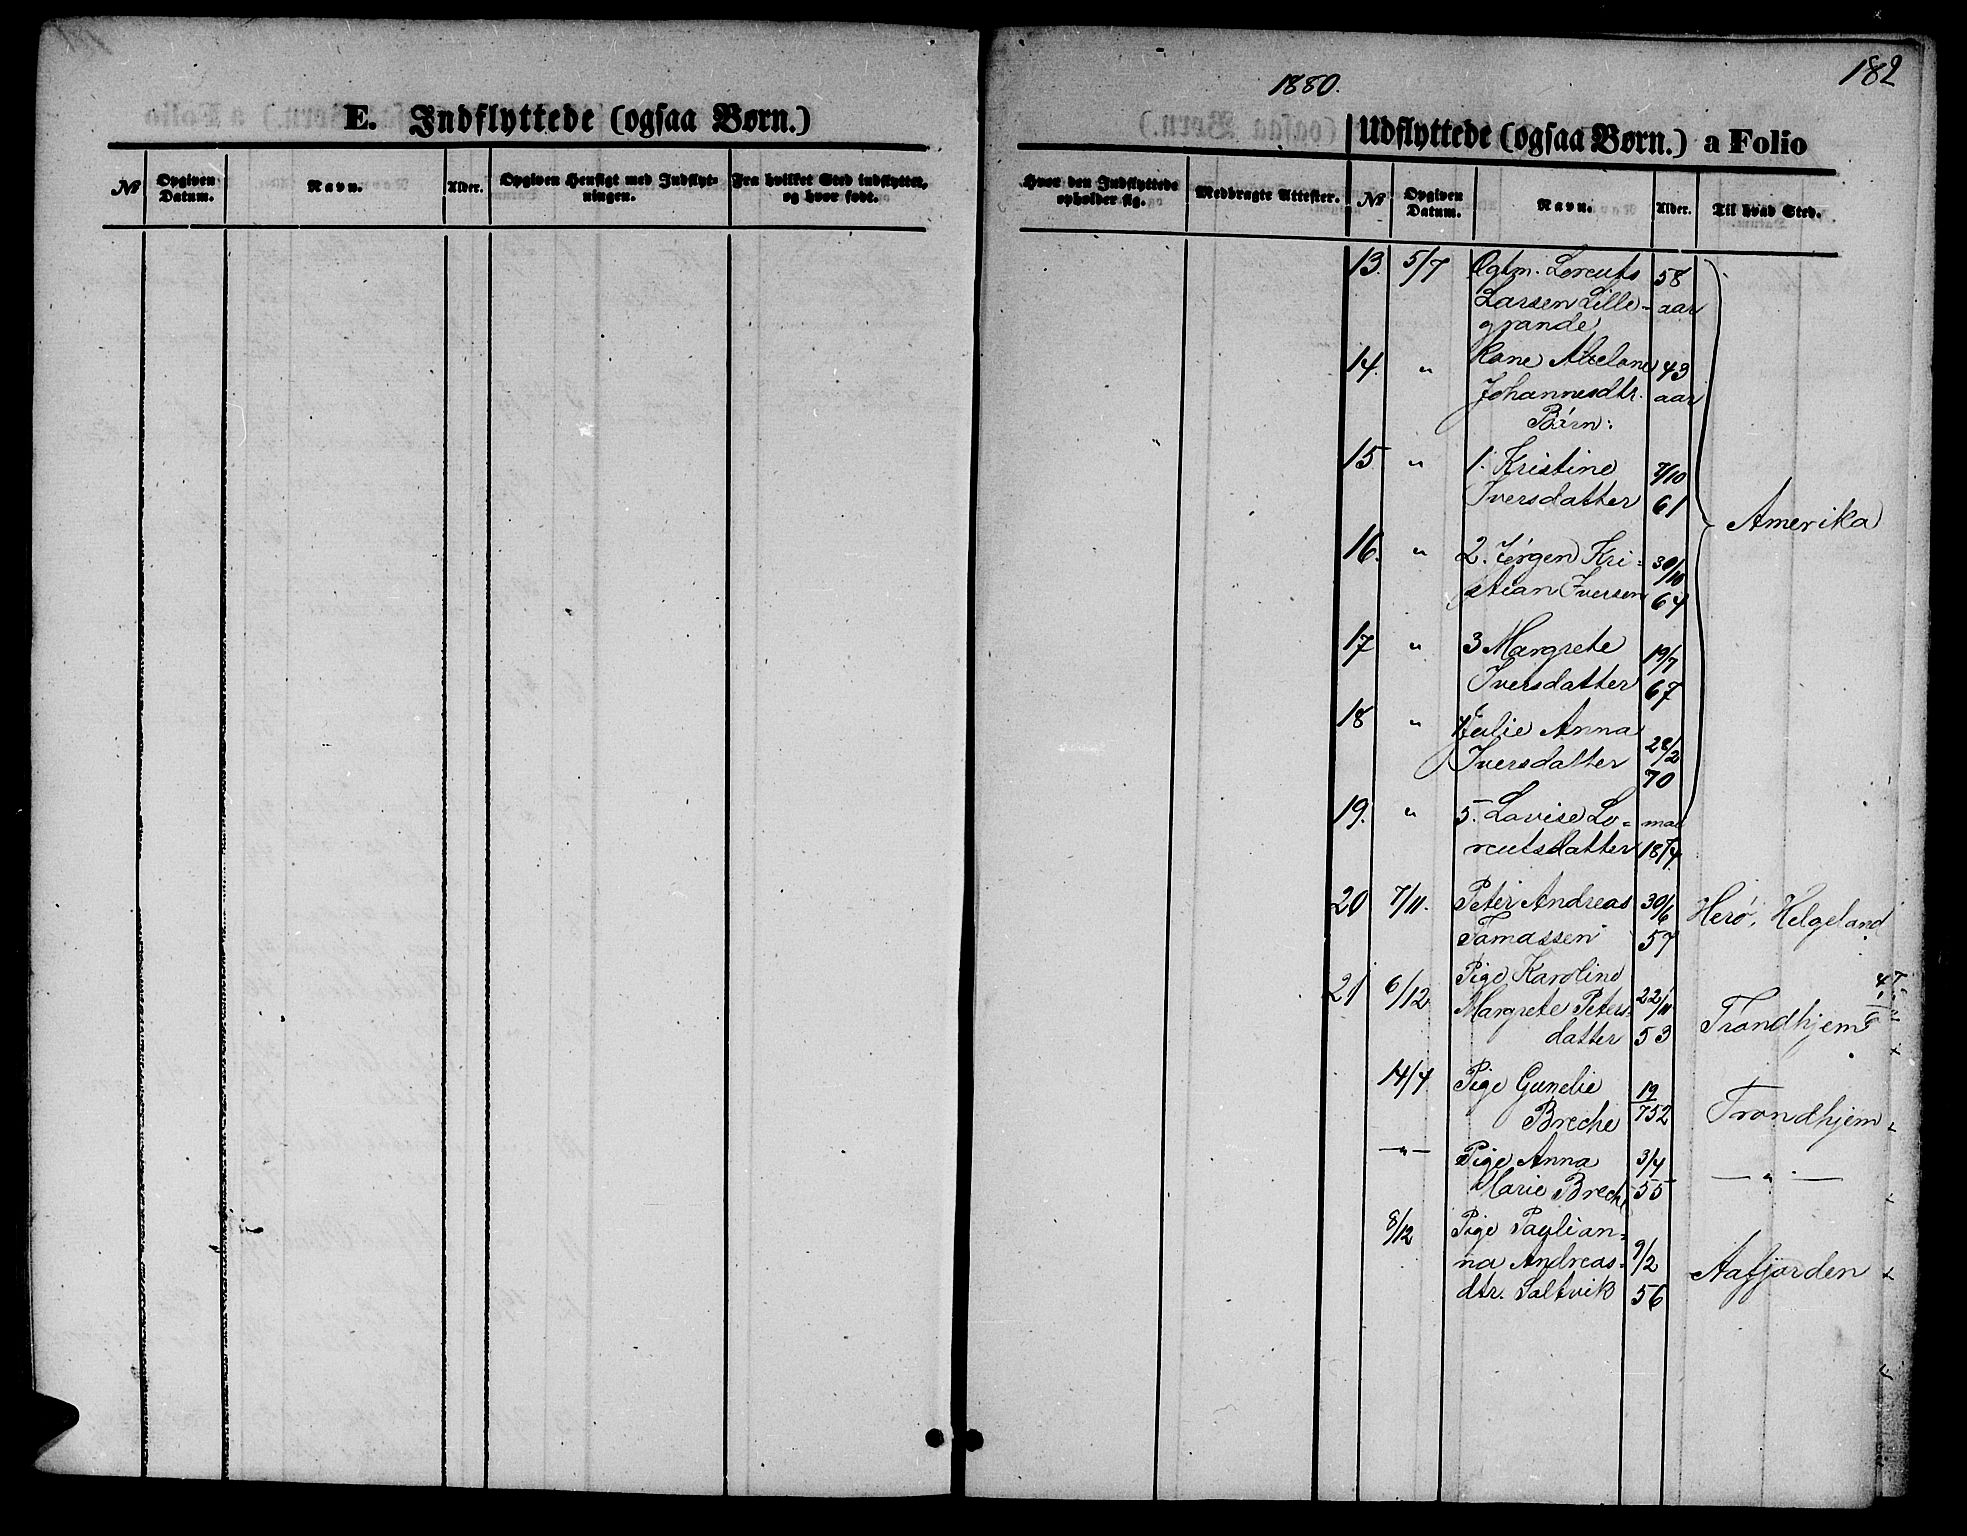 182
1880.
E. Indflyttede (ogsaa Børn.)
Udflyttede (ogsaa Børn.) a Folio
№ Opgiven Datum. Navn. Alder. Opgiven Hensigt med Indflytningen. Fra hvilket Sted indflyttet, og hvor født.
Hvor den Indflyttede opholder sig. Medbragte Attester. № Opgiven Datum. Navn. Alder. Til hvad Sted.
13. 5/7 Lorents 58
Larsen Lille- aar
grande
14. " Kone 43
Johannesdtr. aar
Børn:
15 " 1. Kristine 7/10
Iversdatter 61
Amerika
16. " 2. Jørgen Kri- 30/10
stian Iversen 64
17 " 3 Margrete 19/7
Iversdatter 67
18 " Julie Anna 28/2
Iversdatter 70
19. " 5. Lovise Lo- mai
rentsdatter 1874
20 7/11. Peter Andreas 30/6 Herø, Helgeland
Tomassen 57
21 6/12 Pige Karoline
Margrete Peters- 22/11 Trondhjem
datter 53
14/4 Pige Gunelie 19/7 52 Trondhjem
Breche
—"— Pige Anna 3/4 —"—
Marie Breche 55
8/12 Pige Paulian-
na Andreas- 9/2 Aafjorden
dtr. Saltvik 56